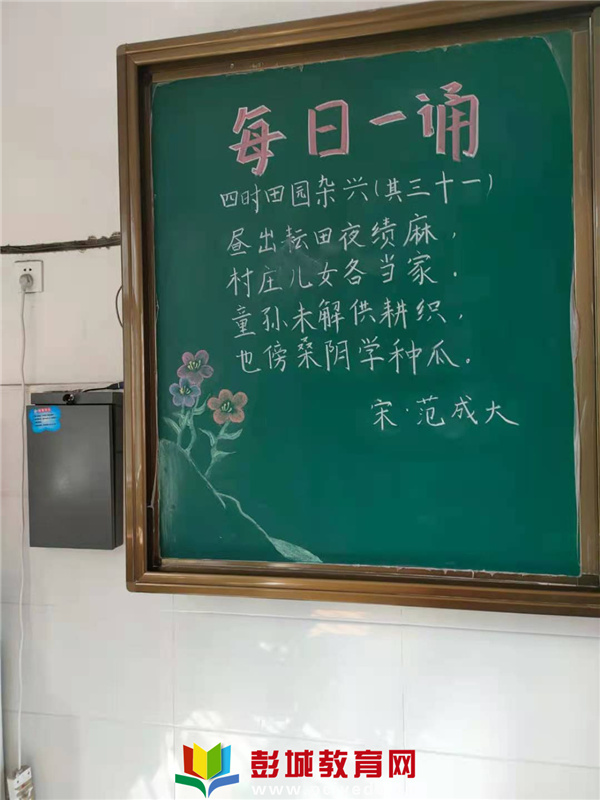 每日一诵
四时田园杂兴(其三十一)
昼出耘田夜绩麻，
村庄儿女各当家．
童孙未解供耕织，
也傍桑阴学种瓜。
宋·范成大
彭城教育网